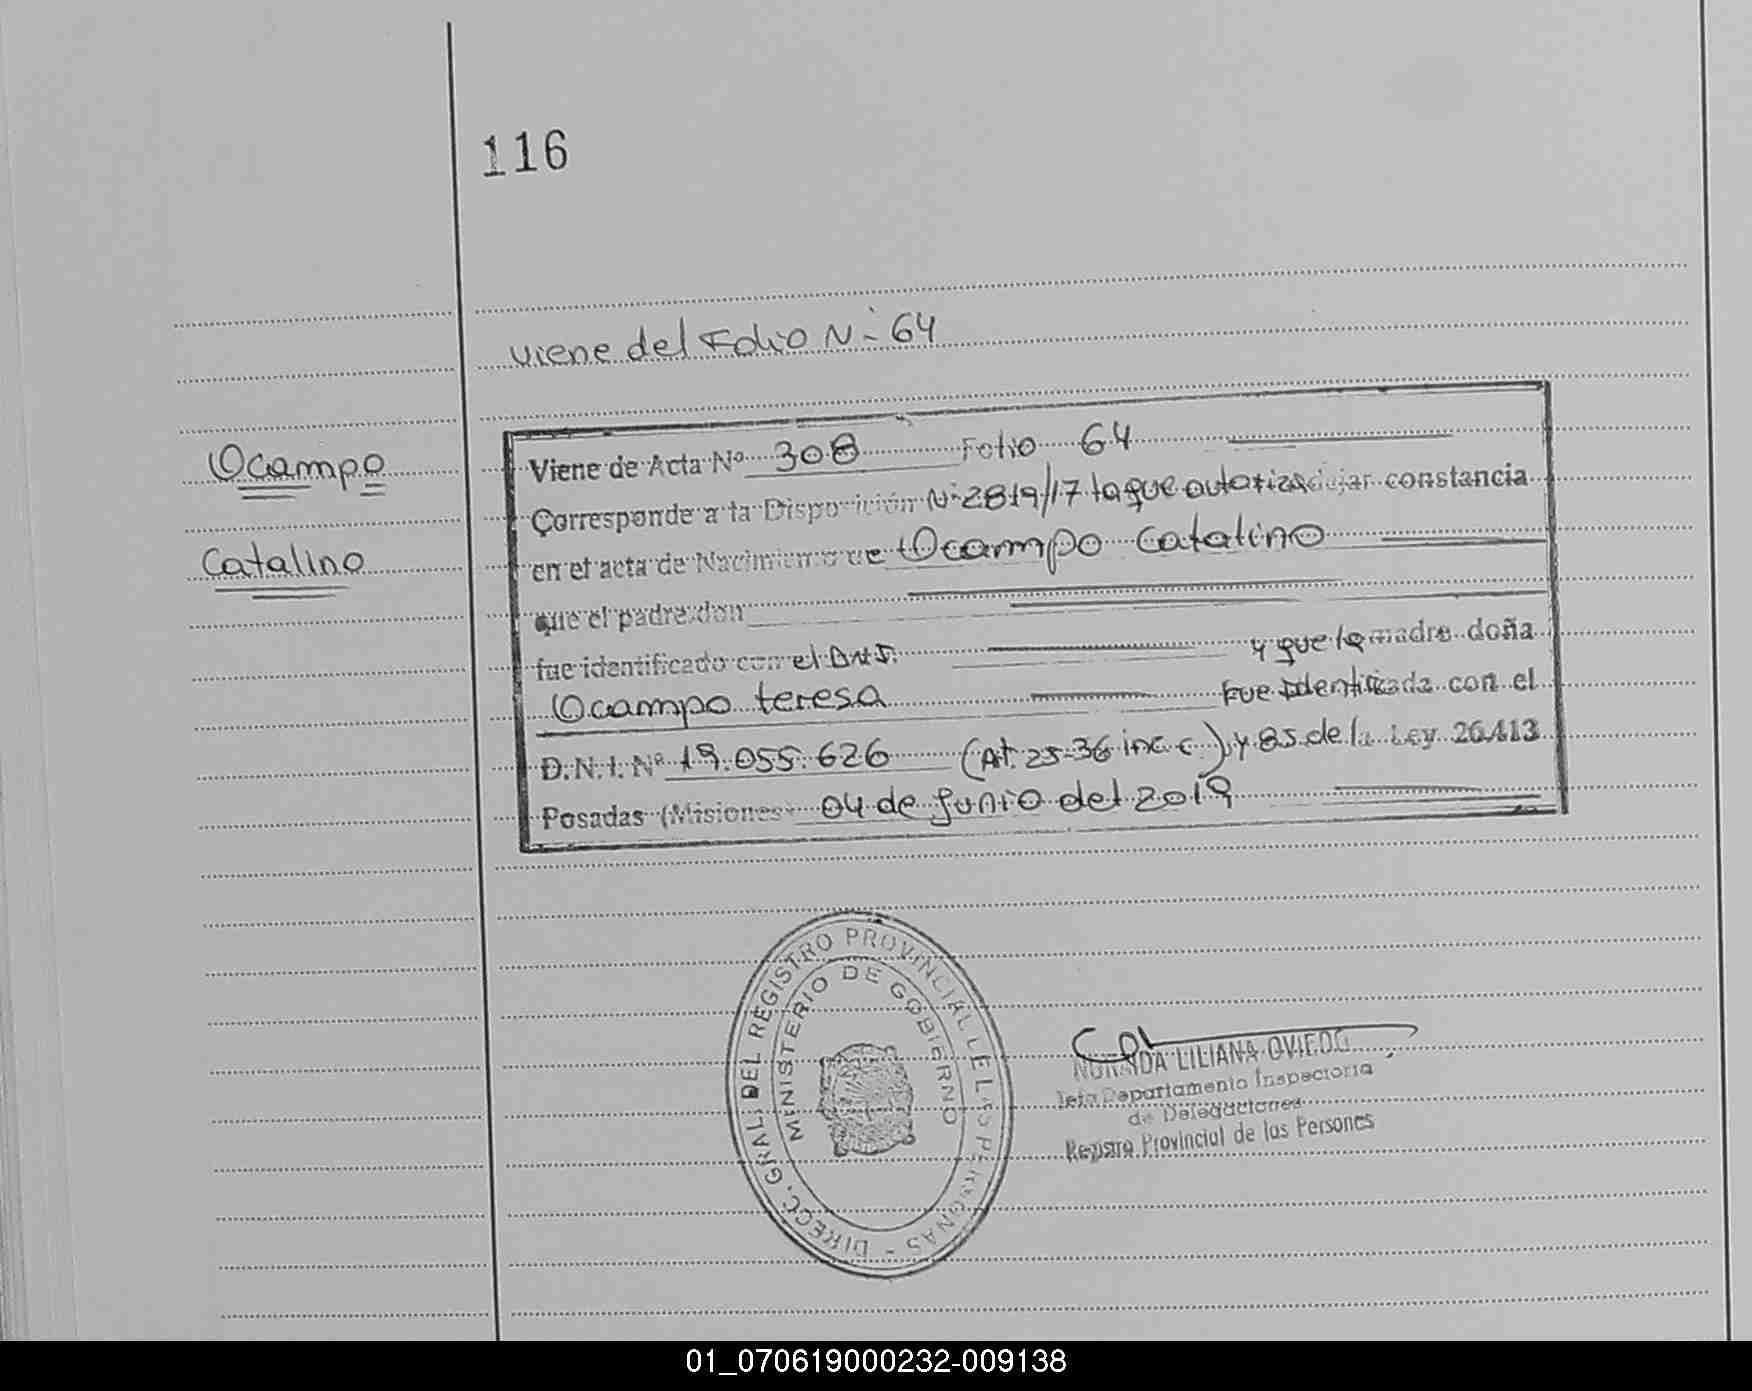 116
Viene del Folio N° 64
Viene de Acta Nº 308 Folio 64
Ocampo
Corresponde a la Disposición N° 2819/17 la que autoriza dejar constancia
en el acta de Nacimiento de Ocampo Catalino
Catalino
que el padre don
fue identificado con el D.N.I.
y que la madre doña
Ocampo teresa Fue Identificada con el
D.N.I. Nº 19.055.626 (At. 25-36 inc c) y 85 de la Ley 26.413
Posadas (Misiones) 04 de Junio del 2019
DIRECC. GRAL. DEL REGISTRO PROVINCIAL DE LAS PERSONAS
MINISTERIO DE GOBIERNO
LILIANA OVIEDO
Jefa Departamento Inspectoria
de Delegaciones
Registro Provincial de las Personas
01_070619000232-009138